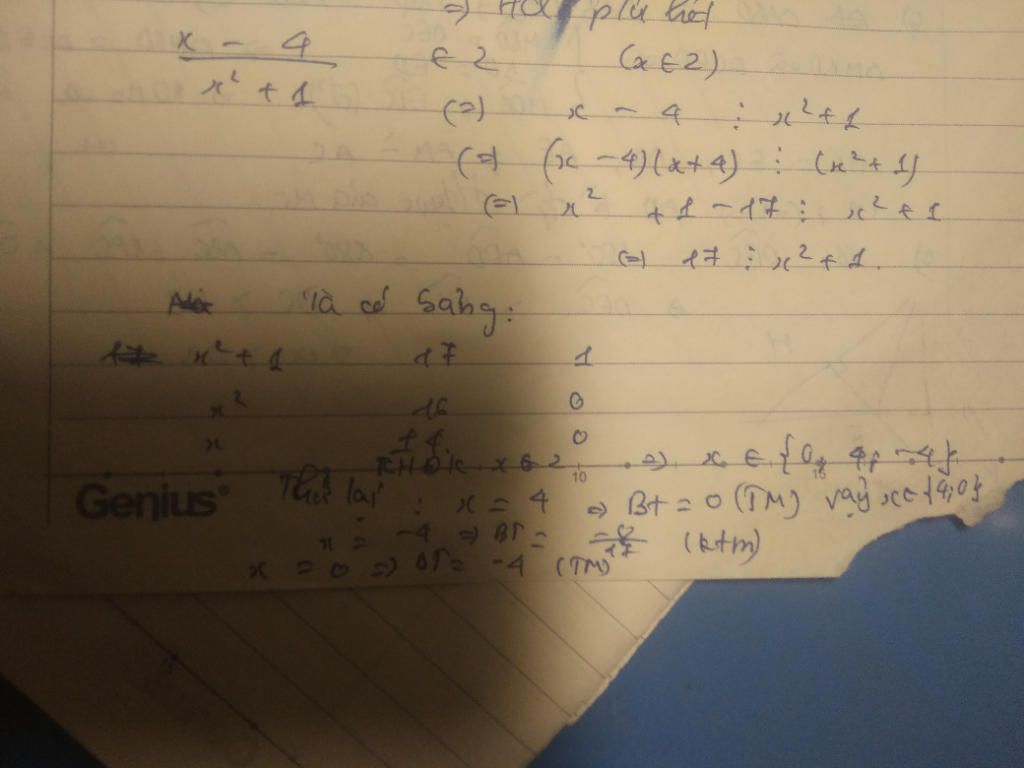 => HQ phụ
x - 4 / x² + 1 ∈ Z (x ∈ Z)
(=) x - 4 ⋮ x² + 1
(=) (x - 4)(x + 4) ⋮ (x² + 1)
(=) x² + 1 - 17 ⋮ x² + 1
(=) 17 ⋮ x² + 1.
Ta có bảng:
x² + 1 17 1
x² 16 0
x ±4 0
x ∈ Z => x ∈ {0, 4, -4}
10 15
Genius
Thử lại: x = 4 => BT = 0 (TM) vậy x ∈ {4; 0}
x = -4 => BT = -8/17 (ktm)
x = 0 => BT = -4 (TM)